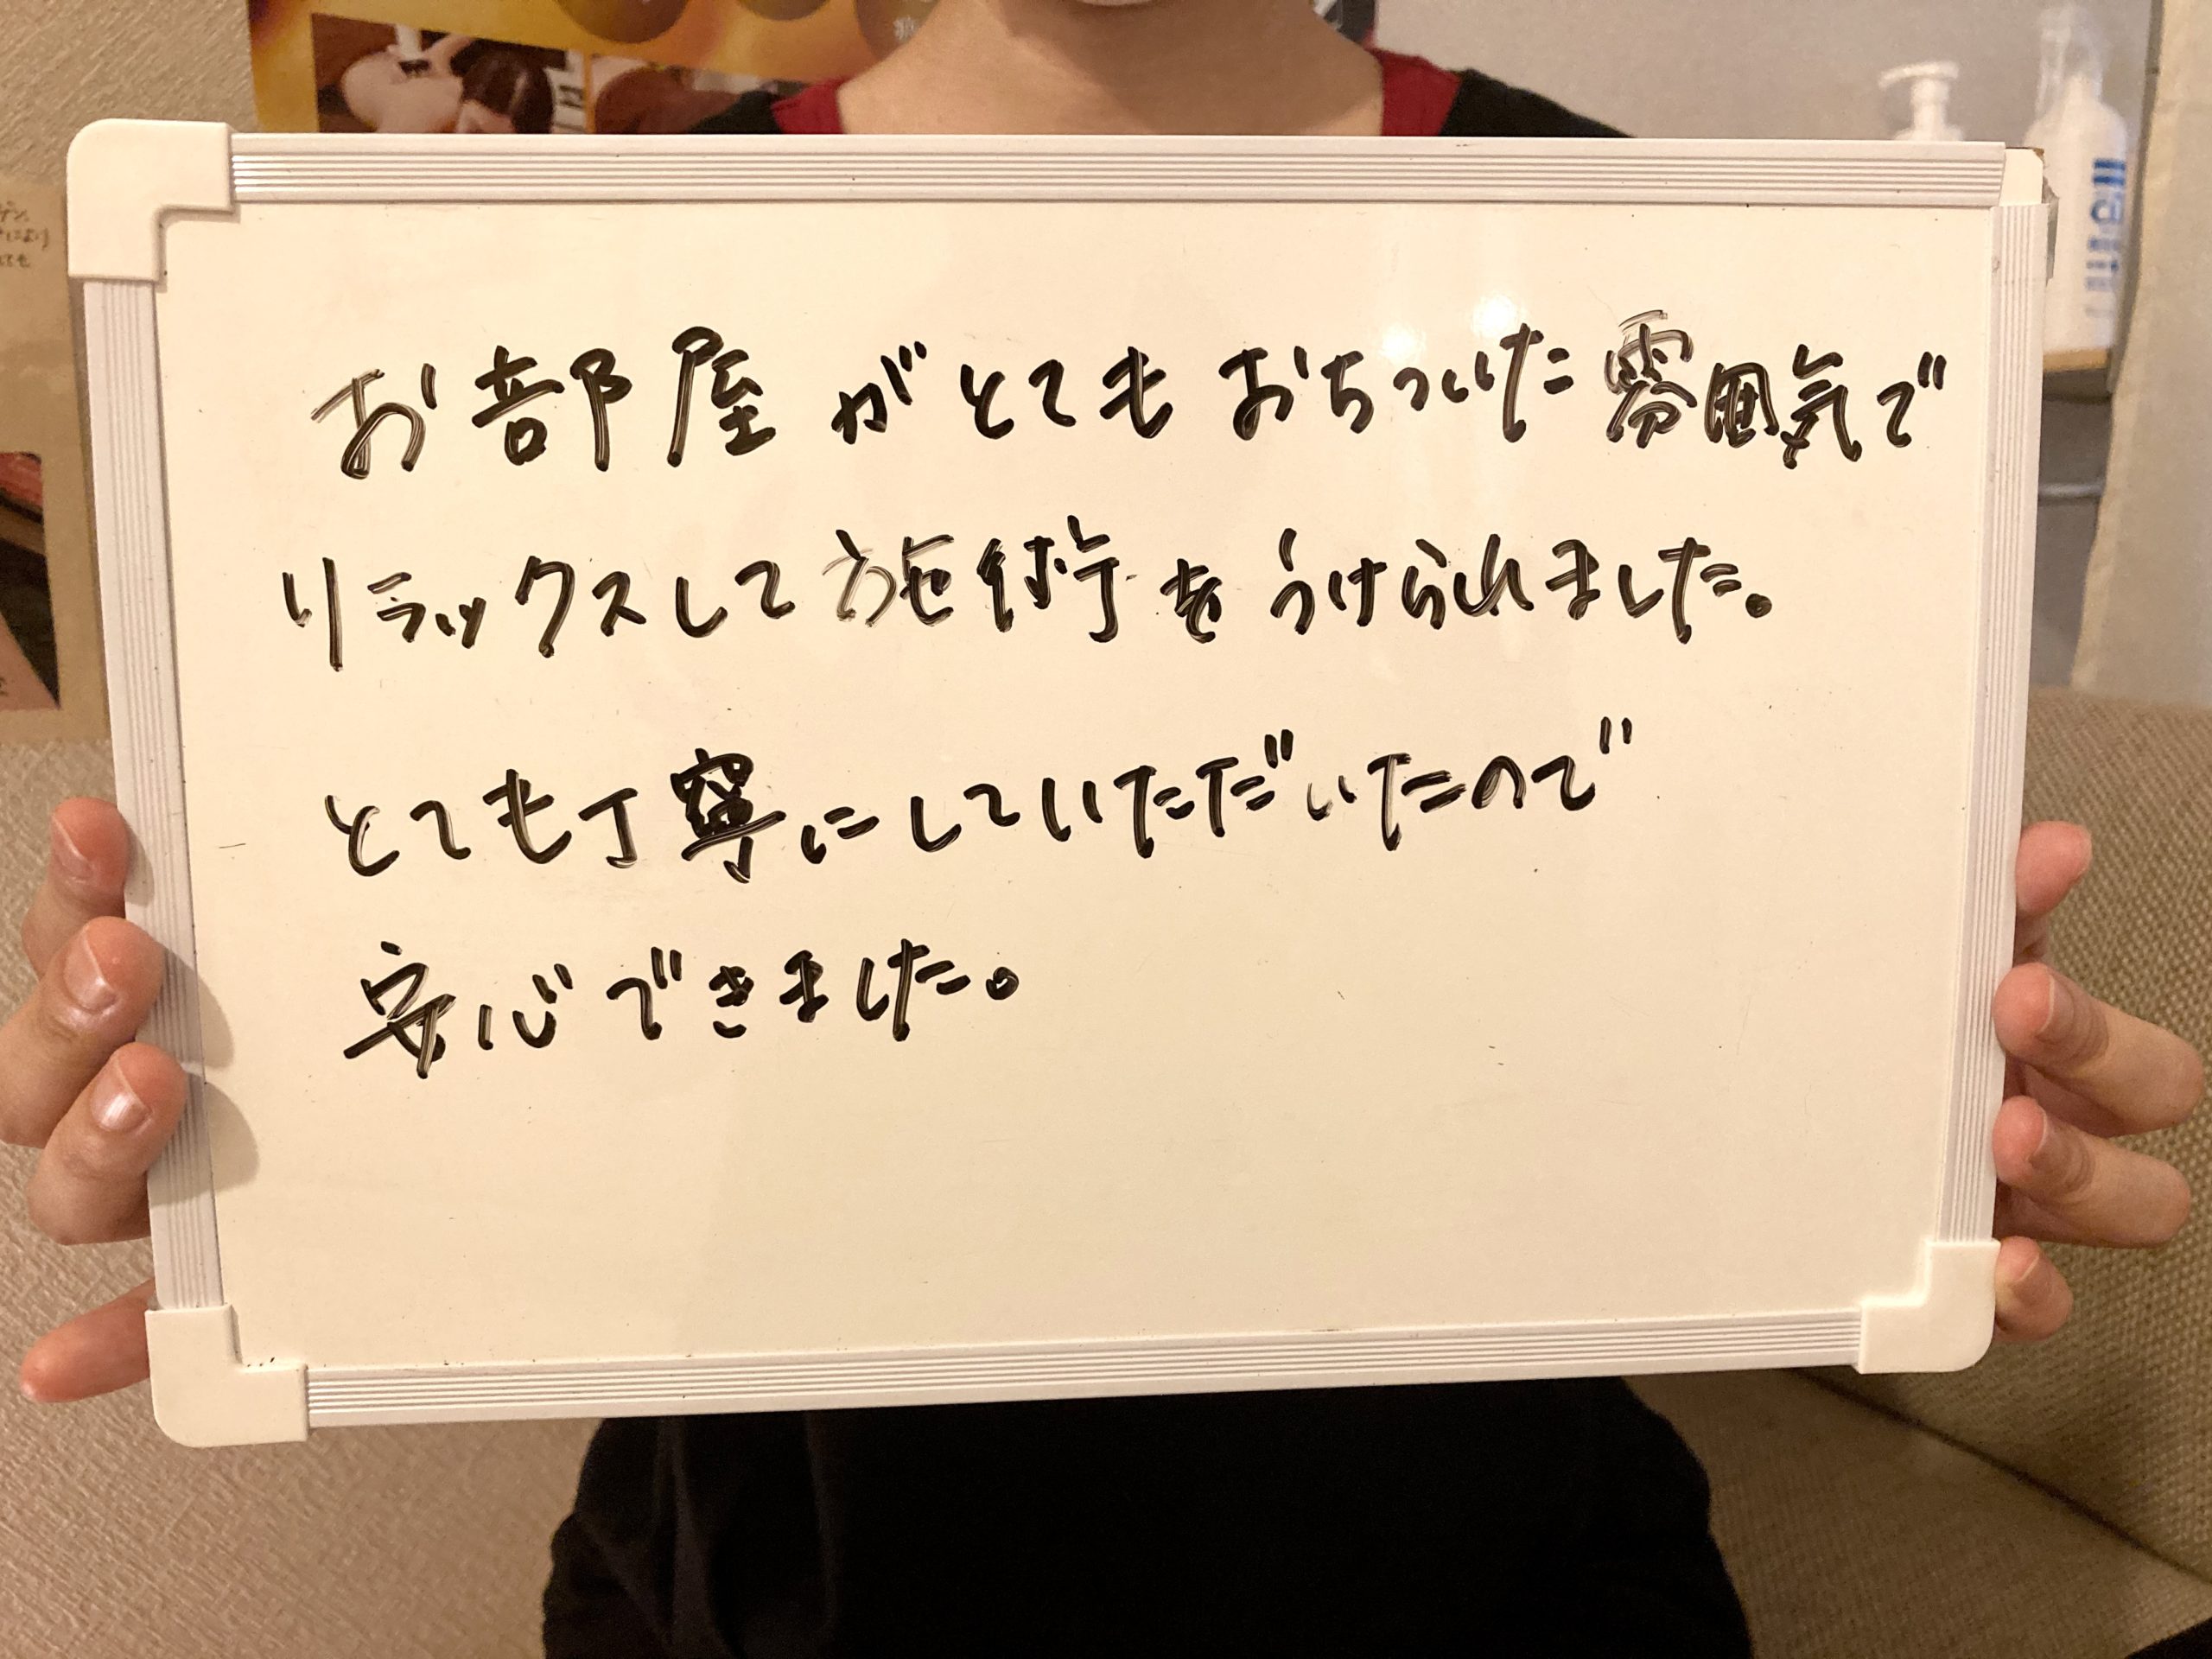 お部屋がとてもおちついた雰囲気で
リラックスして施術をうけられました。
とても丁寧にしていただいたので
安心できました。